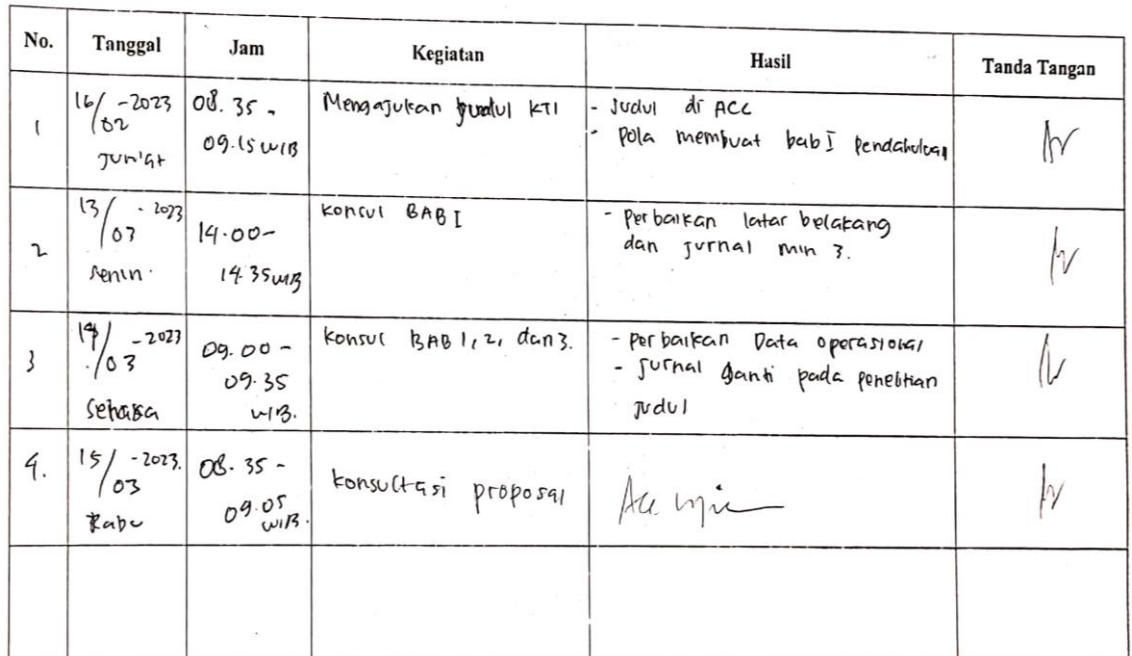 No. Tanggal Jam Kegiatan Hasil Tanda Tangan
1 16/02-2023 Jum'at 08.35 - 09.15 WIB Mengajukan judul KTI - Judul di ACC
- Pola membuat bab I pendahuluan
2 13/03-2023 Senin. 14.00 - 14.35 WIB Konsul BAB I - Perbaikan latar belakang
dan jurnal min 3.
3 14/03-2023 Selasa 09.00 - 09.35 WIB. Konsul BAB 1, 2, dan 3. - Perbaikan Data operasional
- Jurnal ganti pada penelitian
judul
4. 15/03-2023. Rabu 08.35 - 09.05 WIB. Konsultasi proposal Acc